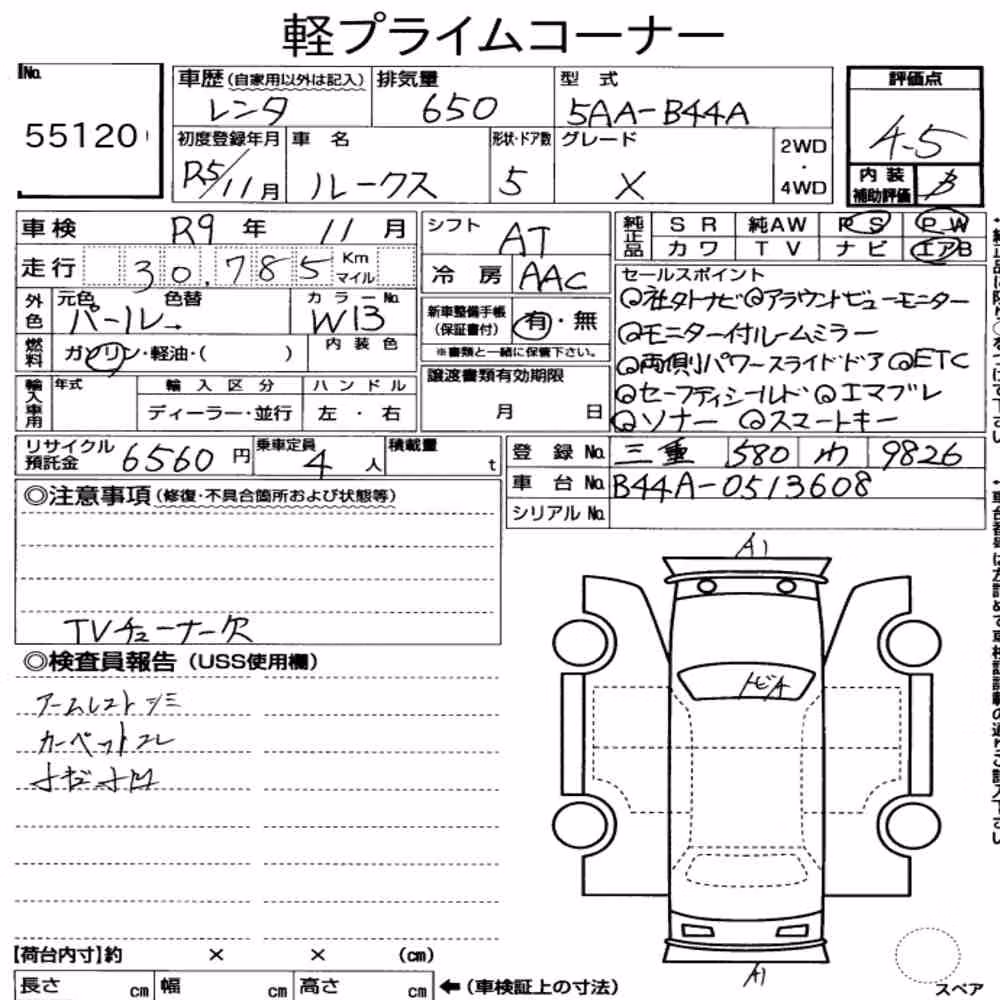 軽プライムコーナー
No. 55120
車歴(自家用以外は記入) レンタ 排気量 650 型式 5AA-B44A 評価点 4.5
初度登録年月 R5/11月 車名 ルークス 形状・ドア数 5 グレード X 2WD・4WD 内装補助評価 B
車検 R9年 11月 シフト AT 純正品 SR 純AW PS PW
走行 30.785 Km マイル 冷房 AAC カワ TV ナビ エアB
外色 元色 パール→ 色替 カラーNo. W13 新車整備手帳(保証書付) 有・無
燃料 ガソリン・軽油・( ) 内装色 ※書類と一緒に保管下さい。
セールスポイント
◎社外ナビ◎アラウンドビューモニター
◎モニター付ルームミラー
◎両側パワースライドドア ◎ETC
◎セーフティシールド ◎エマブレ
◎ソナー ◎スマートキー
輸入車用 年式 輸入区分 ディーラー・並行 ハンドル 左・右 譲渡書類有効期限 月 日
リサイクル預託金 6560円 乗車定員 4人 積載量 t 登録No. 三重 580 わ 9826
車台No. B44A-0513608
シリアルNo.
◎注意事項(修復・不具合箇所および状態等)
TVチューナー欠
◎検査員報告(USS使用欄)
アームレストシミ
カーペットコレ
A1
トビA
A1
スペア
【荷台内寸】約 × × (cm)
長さ cm 幅 cm 高さ cm ←(車検証上の寸法)